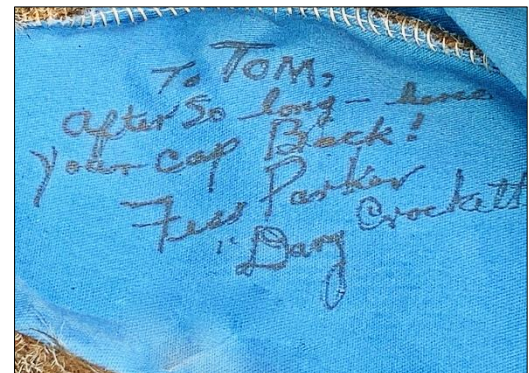 To TOM,
after so long - here
your cap Back!
Fess Parker
"Davy Crockett